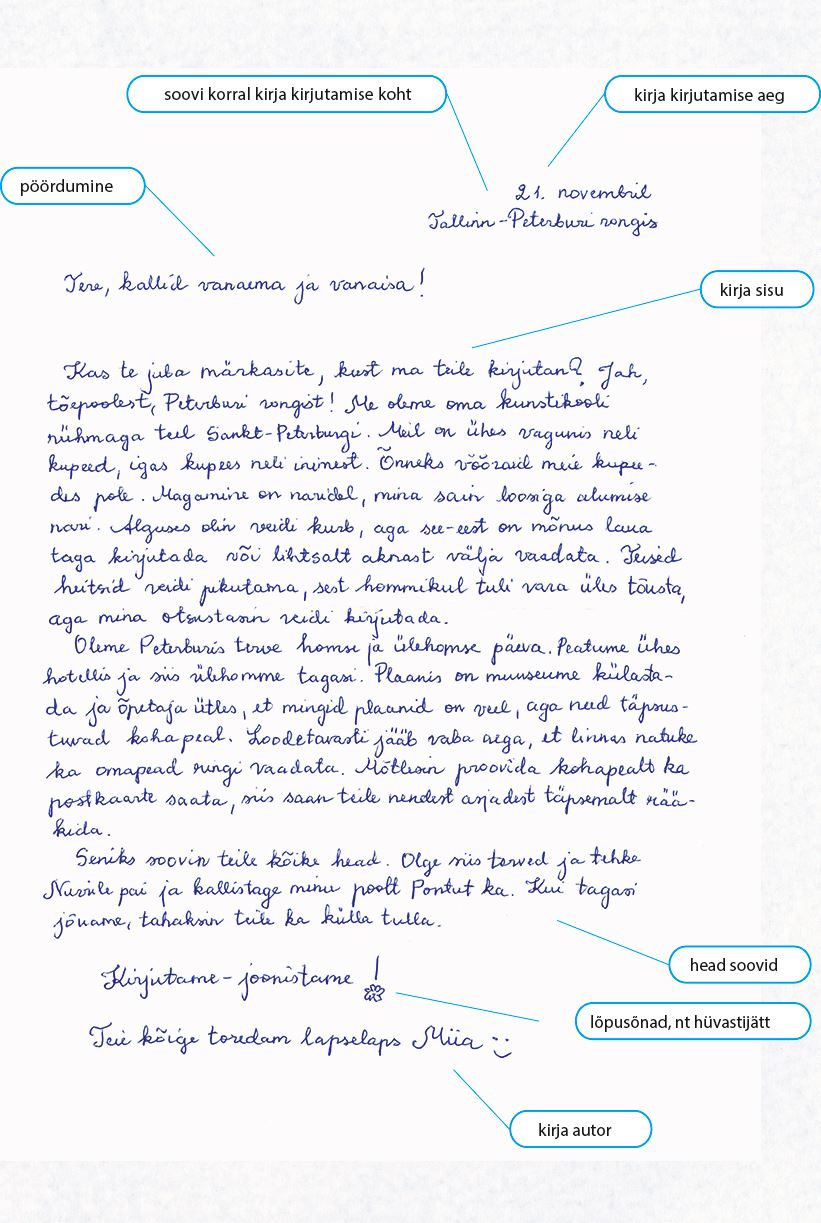 soovi korral kirja kirjutamise koht
kirja kirjutamise aeg
pöördumine
21. novembril
Tallinn-Peterburi rongis
Tere, kallid vanaema ja vanaisa!
kirja sisu
Kas te juba märkasite, kust ma teile kirjutan? Jah,
tõepoolest, Peterburi rongist! Me oleme oma kunstikooli
rühmaga teel Sankt-Peterburgi. Meil on ühes vagunis neli
kupeed, igas kupees neli inimest. Õnneks võõraid meie kupee-
des pole. Magamine on naridel, mina sain loosiga alumise
nari. Alguses olin veidi kurb, aga see-eest on mõnus laua
taga kirjutada või lihtsalt aknast välja vaadata. Teised
heitsid veidi pikutama, sest hommikul tuli vara üles tõusta,
aga mina otsustasin veidi kirjutada.
Oleme Peterburis terve homse ja ülehomse päeva. Peatume ühes
hotellis ja siis ülehomme tagasi. Plaanis on muuseume külasta-
da ja õpetaja ütles, et mingid plaanid on veel, aga need täpsus-
tuvad kohapeal. Loodetavasti jääb vaba aega, et linnas natuke
ka omapead ringi vaadata. Mõtlesin proovida kohapealt ka
postkaarte saata, siis saan teile nendest asjadest täpsemalt rää-
kida.
Seniks soovin teile kõike head. Olge siis terved ja tehke
Nurrile pai ja kallistage minu poolt Pontut ka. Kui tagasi
jõuame, tahaksin teile ka külla tulla.
head soovid
Kirjutame-joonistame!
lõpusõnad, nt hüvastijätt
Teie kõige toredam lapselaps Miia :)
kirja autor